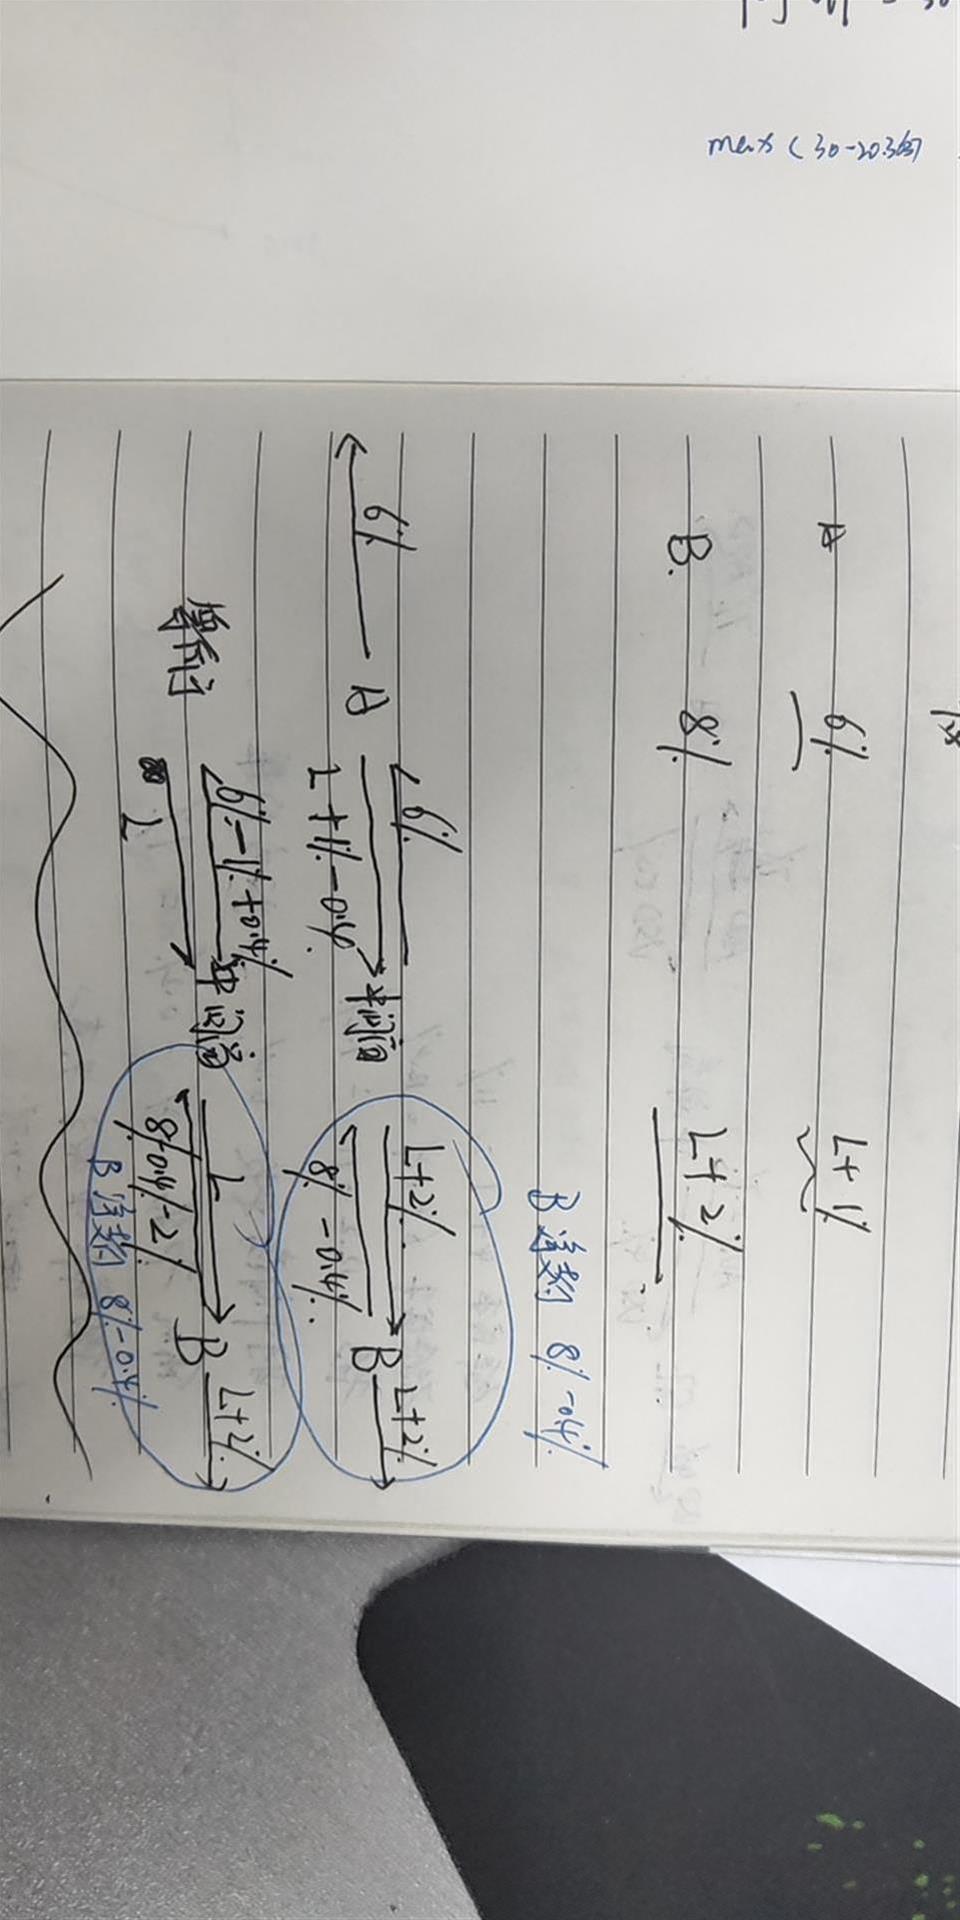 max(30-20.36)
A 6% L+1%
B. 8% L+2%
B 净药 8%-0.4%
6% L+2%
6% A 中间商 B L+2%
L+1%-0.4% 8%-0.4%
6%-1%+0.4% L
等价于 中间商 B L+2%
L 8%-0.4%-2%
8%-0.4%